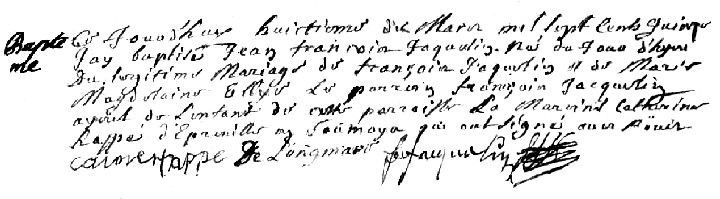 Bapte Ce Jourd'huy huictieme de Mars mil sept cents quinze
me Jay baptisé Jean francoin Jaquelin né du Jour d'hyer
Du legitime Mariage de françoin Jaquelin et de Marie
Magdelaine le parrein françoin Jacquelin
ayeul de Lenfant de cette parroisse La Mareine Catherine
happe d'Epreville en qui ont signé avec
happe De Longmare Jacquelin